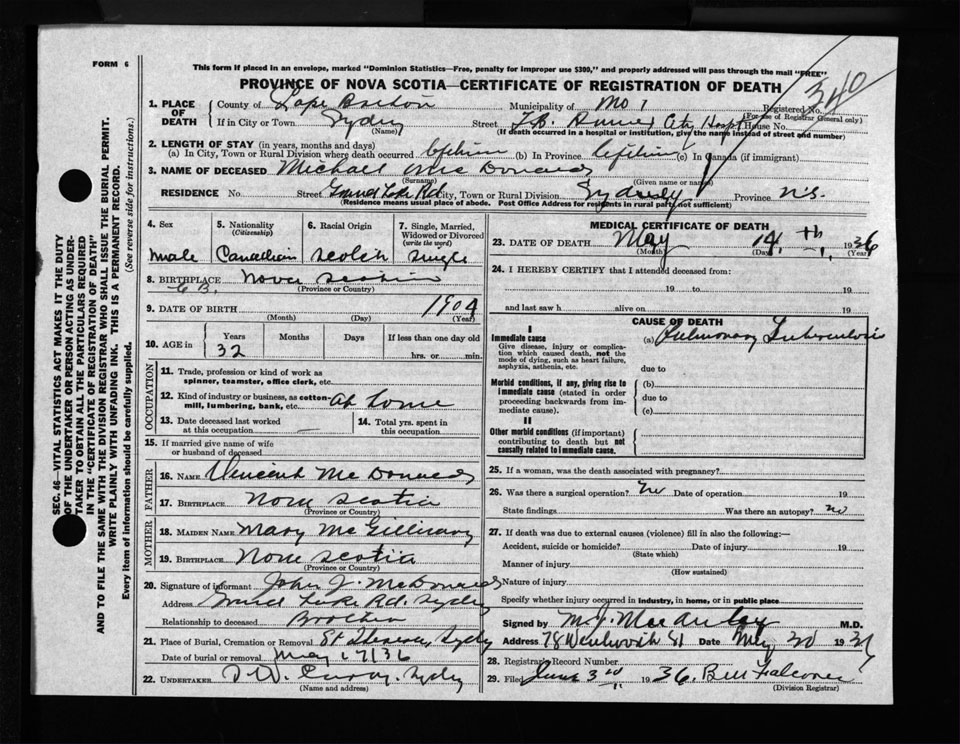 FORM 6
This form if placed in an envelope, marked "Dominion Statistics—Free, penalty for improper use $300," and properly addressed will pass through the mail "FREE"
PROVINCE OF NOVA SCOTIA—CERTIFICATE OF REGISTRATION OF DEATH
340
1. PLACE OF DEATH
County of Cape Breton Municipality of Registered No.
(For use of Registrar General only)
If in City or Town Sydney Street T.B. City Hospt House No.
(Name) (If death occurred in a hospital or institution, give the name instead of street and number)
2. LENGTH OF STAY (in years, months and days)
(a) In City, Town or Rural Division where death occurred lifetime (b) In Province lifetime (c) In Canada (if immigrant)
3. NAME OF DECEASED Michael McDonald
(Surname) (Given name or names)
RESIDENCE No. Street Grand Lake Rd City, Town or Rural Division Sydney Province N.S.
(Residence means usual place of abode. Post Office Address for residents in rural parts not sufficient)
4. Sex
male
5. Nationality
(Citizenship)
Canadian
6. Racial Origin
Scotch
7. Single, Married, Widowed or Divorced
(write the word)
single
8. BIRTHPLACE Nova Scotia
C B. (Province or Country)
9. DATE OF BIRTH 1904
(Month) (Day) (Year)
10. AGE in
Years Months Days If less than one day old
32 hrs. or min.
OCCUPATION
11. Trade, profession or kind of work as spinner, teamster, office clerk, etc.
12. Kind of industry or business, as cotton-mill, lumbering, bank, etc. At home
13. Date deceased last worked at this occupation
14. Total yrs. spent in this occupation
15. If married give name of wife or husband of deceased
FATHER
16. NAME Vincent McDonald
17. BIRTHPLACE Nova Scotia
(Province or Country)
MOTHER
18. MAIDEN NAME Mary McGillivary
19. BIRTHPLACE Nova Scotia
(Province or Country)
20. Signature of informant John J. McDonald
Address Grand Lake Rd. Sydney
Relationship to deceased Brother
21. Place of Burial, Cremation or Removal St Theresa, Sydney
Date of burial or removal May 17/36
22. UNDERTAKER Curry. Sydney
(Name and address)
MEDICAL CERTIFICATE OF DEATH
23. DATE OF DEATH May 14th, 1936
(Month) (Day) (Year)
24. I HEREBY CERTIFY that I attended deceased from:
19 to 19
and last saw h alive on 19
CAUSE OF DEATH
I
Immediate cause
Give disease, injury or complication which caused death, not the mode of dying, such as heart failure, asphyxia, asthenia, etc.
(a) Pulmonary Tuberculosis
due to
Morbid conditions, if any, giving rise to immediate cause (stated in order proceeding backwards from immediate cause).
(b)
due to
(c)
II
Other morbid conditions (if important) contributing to death but not causally related to immediate cause.
25. If a woman, was the death associated with pregnancy?
26. Was there a surgical operation? no Date of operation 19
State findings Was there an autopsy? no
27. If death was due to external causes (violence) fill in also the following:—
Accident, suicide or homicide? Date of injury 19
(State which)
Manner of injury
(How sustained)
Nature of injury
Specify whether injury occurred in industry, in home, or in public place
Signed by M.J. Macaulay M.D.
Address 78 Wentworth St Date May 30 193
28. Registrar's Record Number
29. Filed June 3rd 1936. Falconer
(Division Registrar)
SEC. 46—VITAL STATISTICS ACT MAKES IT THE DUTY
OF THE UNDERTAKER OR PERSON ACTING AS UNDER-
TAKER TO OBTAIN ALL THE PARTICULARS REQUIRED
IN THE "CERTIFICATE OF REGISTRATION OF DEATH"
AND TO FILE THE SAME WITH THE DIVISION REGISTRAR WHO SHALL ISSUE THE BURIAL PERMIT.
WRITE PLAINLY WITH UNFADING INK. THIS IS A PERMANENT RECORD.
Every item of information should be carefully supplied. (See reverse side for instructions.)